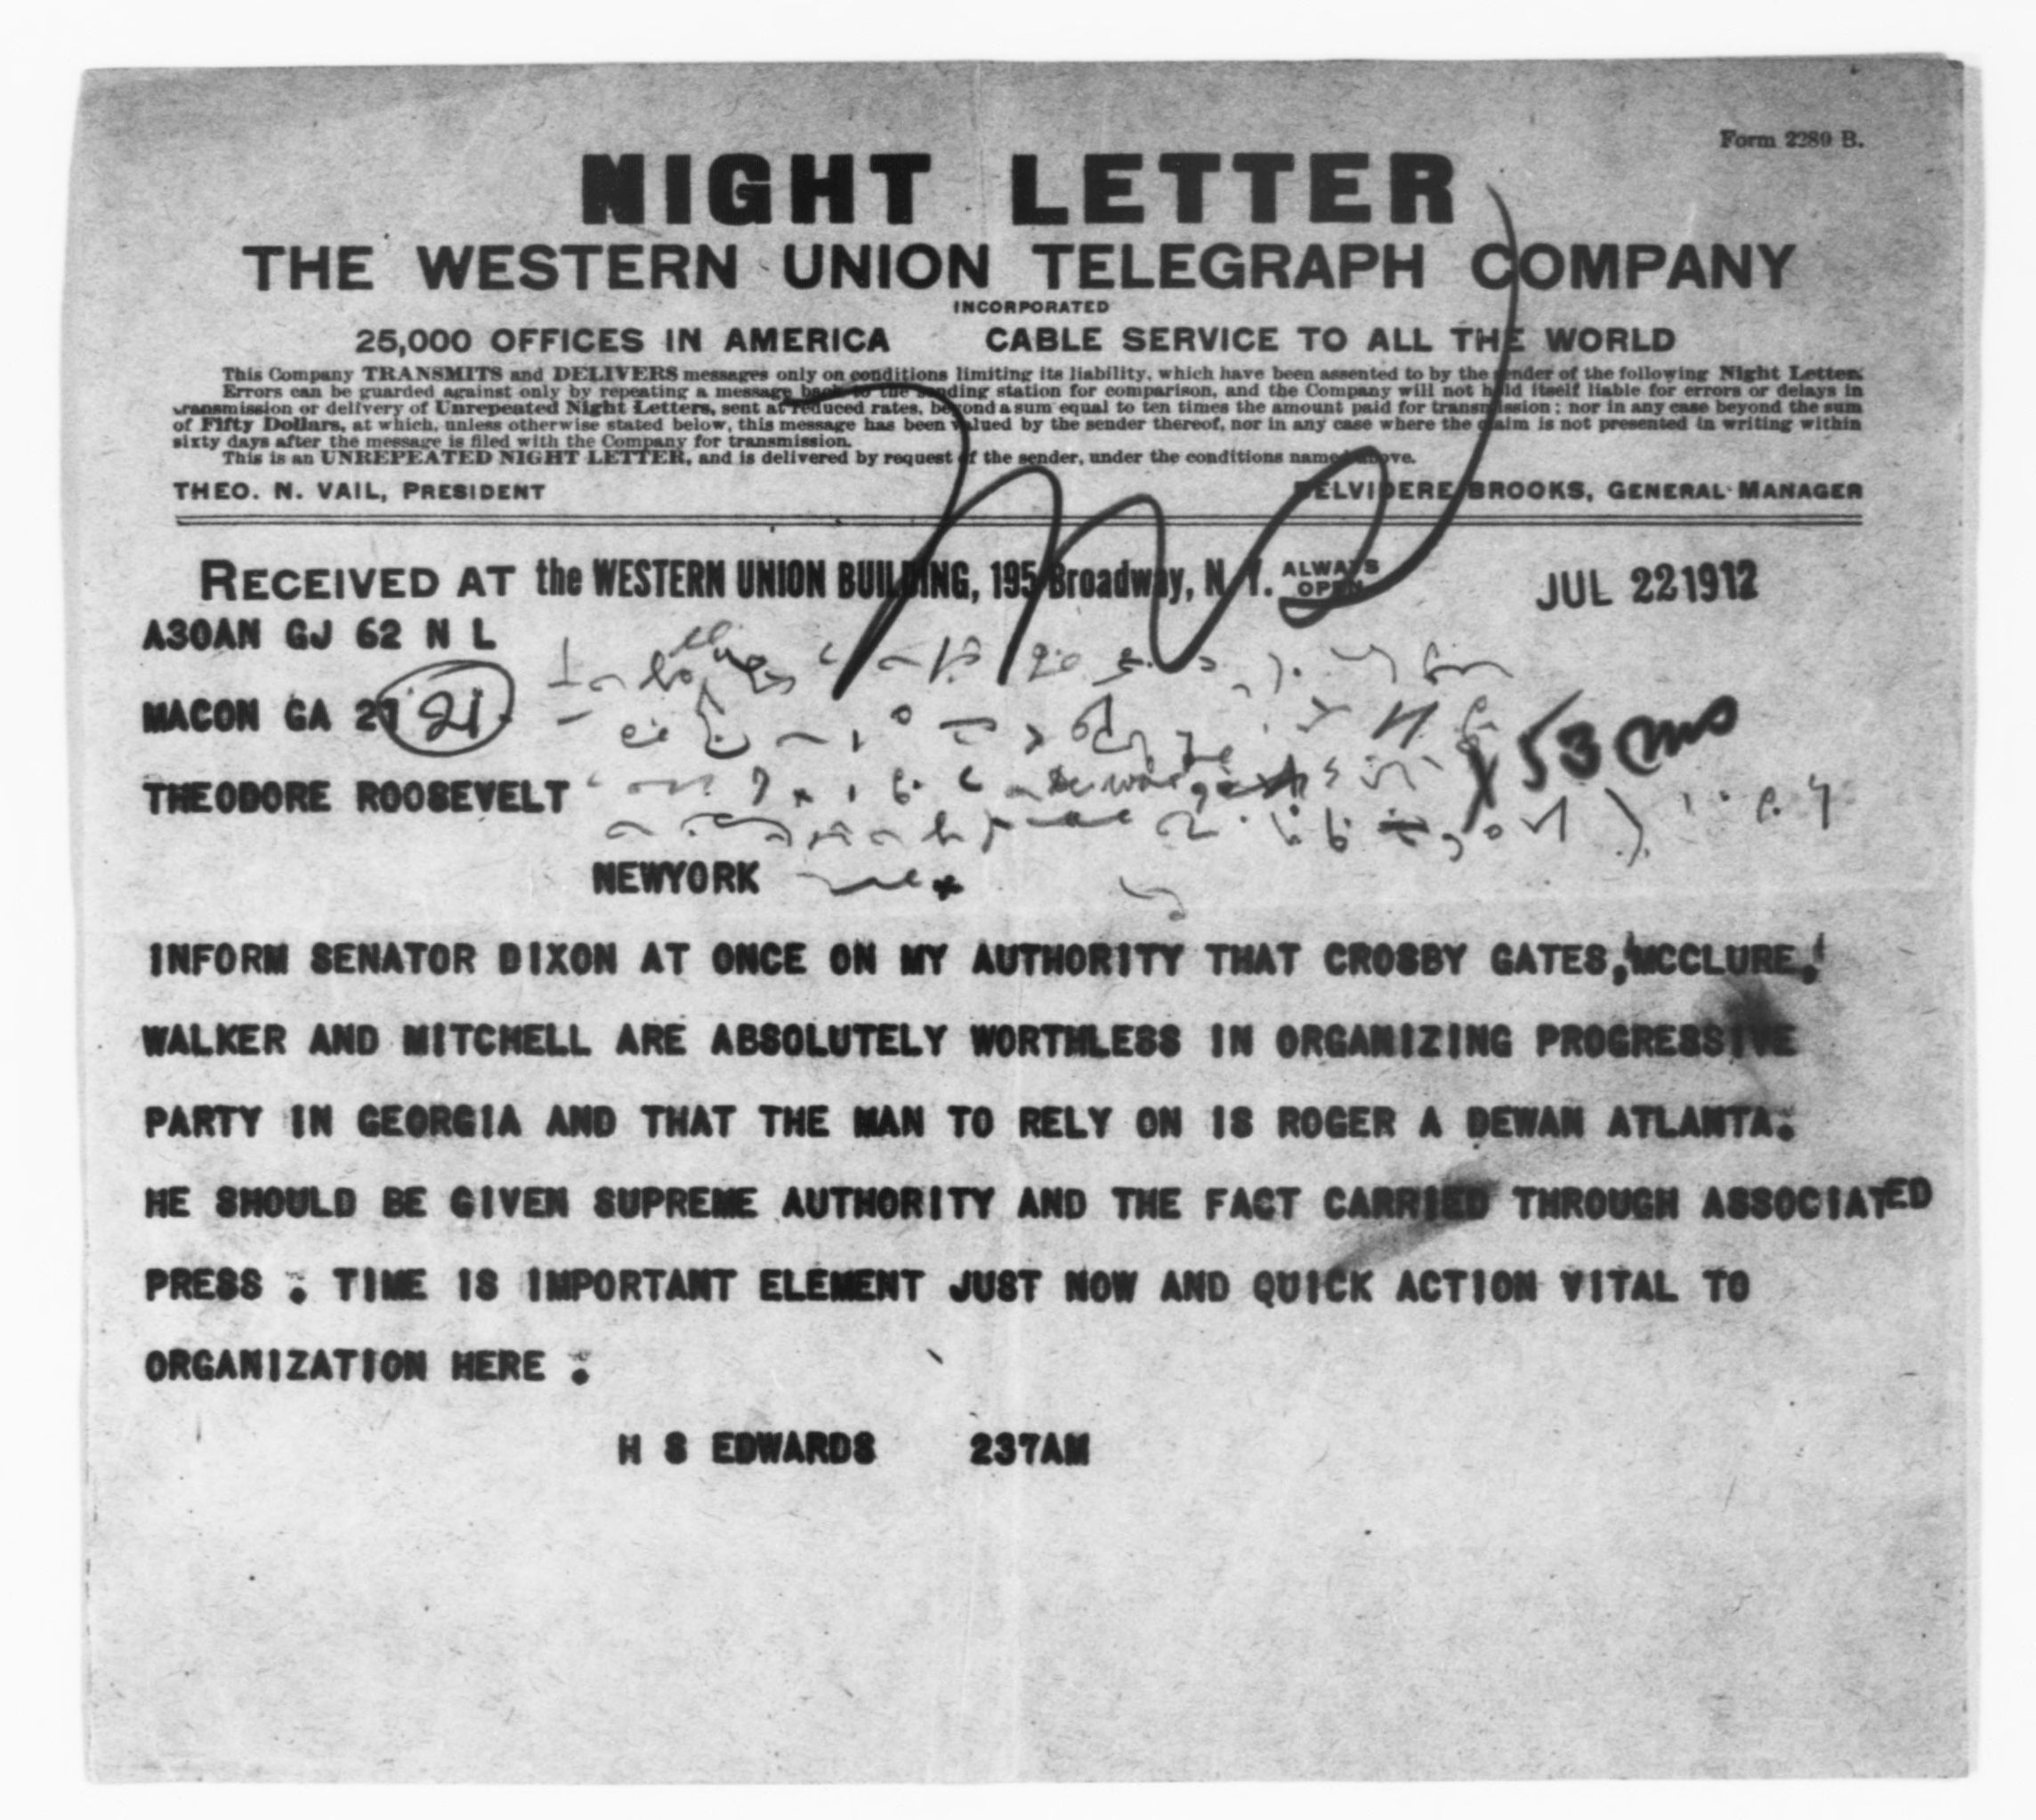 Form 2289 B.
NIGHT LETTER
THE WESTERN UNION TELEGRAPH COMPANY
INCORPORATED
25,000 OFFICES IN AMERICA CABLE SERVICE TO ALL THE WORLD
This Company TRANSMITS and DELIVERS messages only on conditions limiting its liability, which have been assented to by the sender of the following Night Letter.
Errors can be guarded against only by repeating a message back to the sending station for comparison, and the Company will not hold itself liable for errors or delays in
transmission or delivery of Unrepeated Night Letters, sent at reduced rates, beyond a sum equal to ten times the amount paid for transmission; nor in any case beyond the sum
of Fifty Dollars, at which, unless otherwise stated below, this message has been valued by the sender thereof, nor in any case where the claim is not presented in writing within
sixty days after the message is filed with the Company for transmission.
This is an UNREPEATED NIGHT LETTER, and is delivered by request of the sender, under the conditions named above.
THEO. N. VAIL, PRESIDENT BELVIDERE BROOKS, GENERAL MANAGER
RECEIVED AT the WESTERN UNION BUILDING, 195 Broadway, N. Y. ALWAYS OPEN JUL 22 1912
A30AN GJ 62 N L
MACON GA 21 21
53
THEODORE ROOSEVELT
NEWYORK
INFORM SENATOR DIXON AT ONCE ON MY AUTHORITY THAT CROSBY GATES, MCCLURE,
WALKER AND MITCHELL ARE ABSOLUTELY WORTHLESS IN ORGANIZING PROGRESSIVE
PARTY IN GEORGIA AND THAT THE MAN TO RELY ON IS ROGER A DEWAN ATLANTA.
HE SHOULD BE GIVEN SUPREME AUTHORITY AND THE FACT CARRIED THROUGH ASSOCIATED
PRESS . TIME IS IMPORTANT ELEMENT JUST NOW AND QUICK ACTION VITAL TO
ORGANIZATION HERE .
H S EDWARDS 237AM